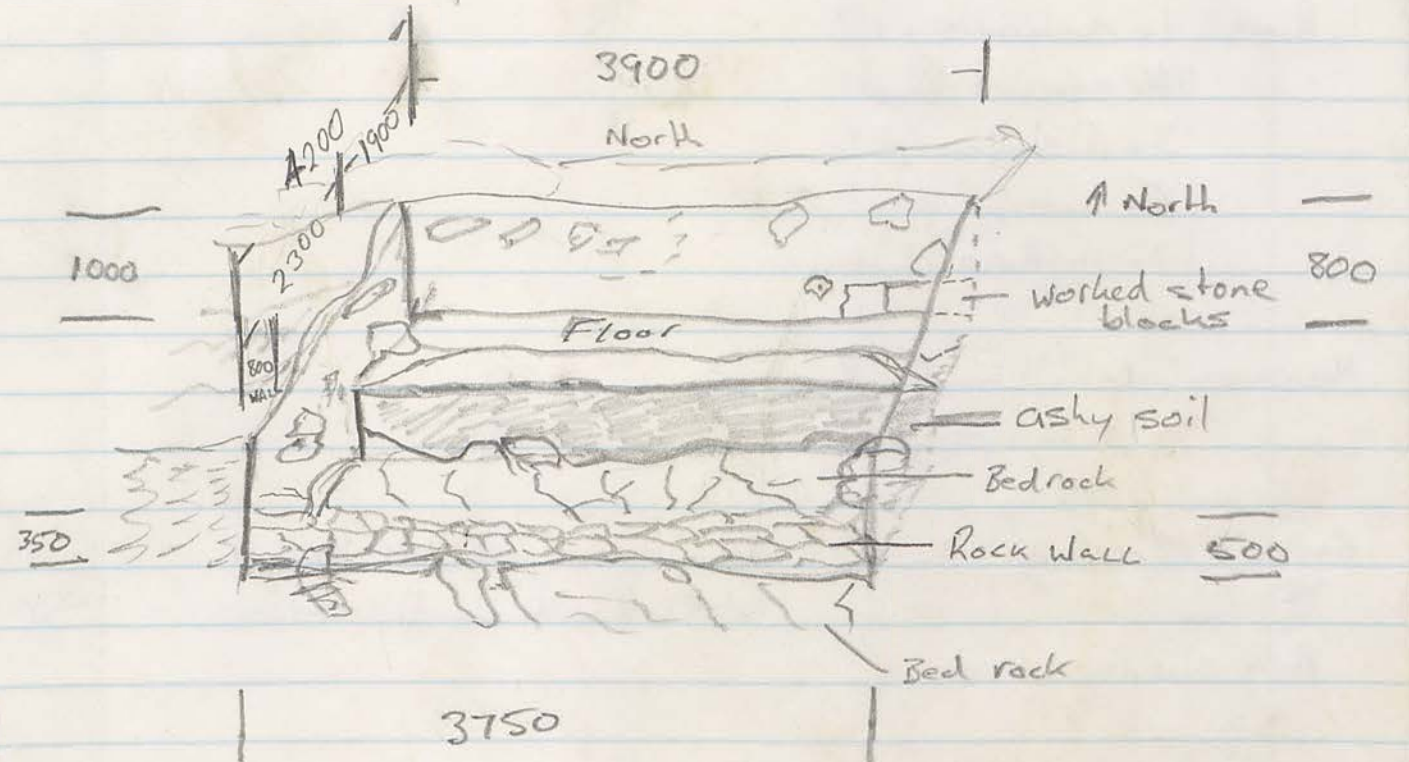 3900
4200
1900
North
↑ North
1000
2300
800
worked stone
blocks
Floor
800
WALL
ashy soil
Bedrock
350
Rock Wall
500
Bed rock
3750